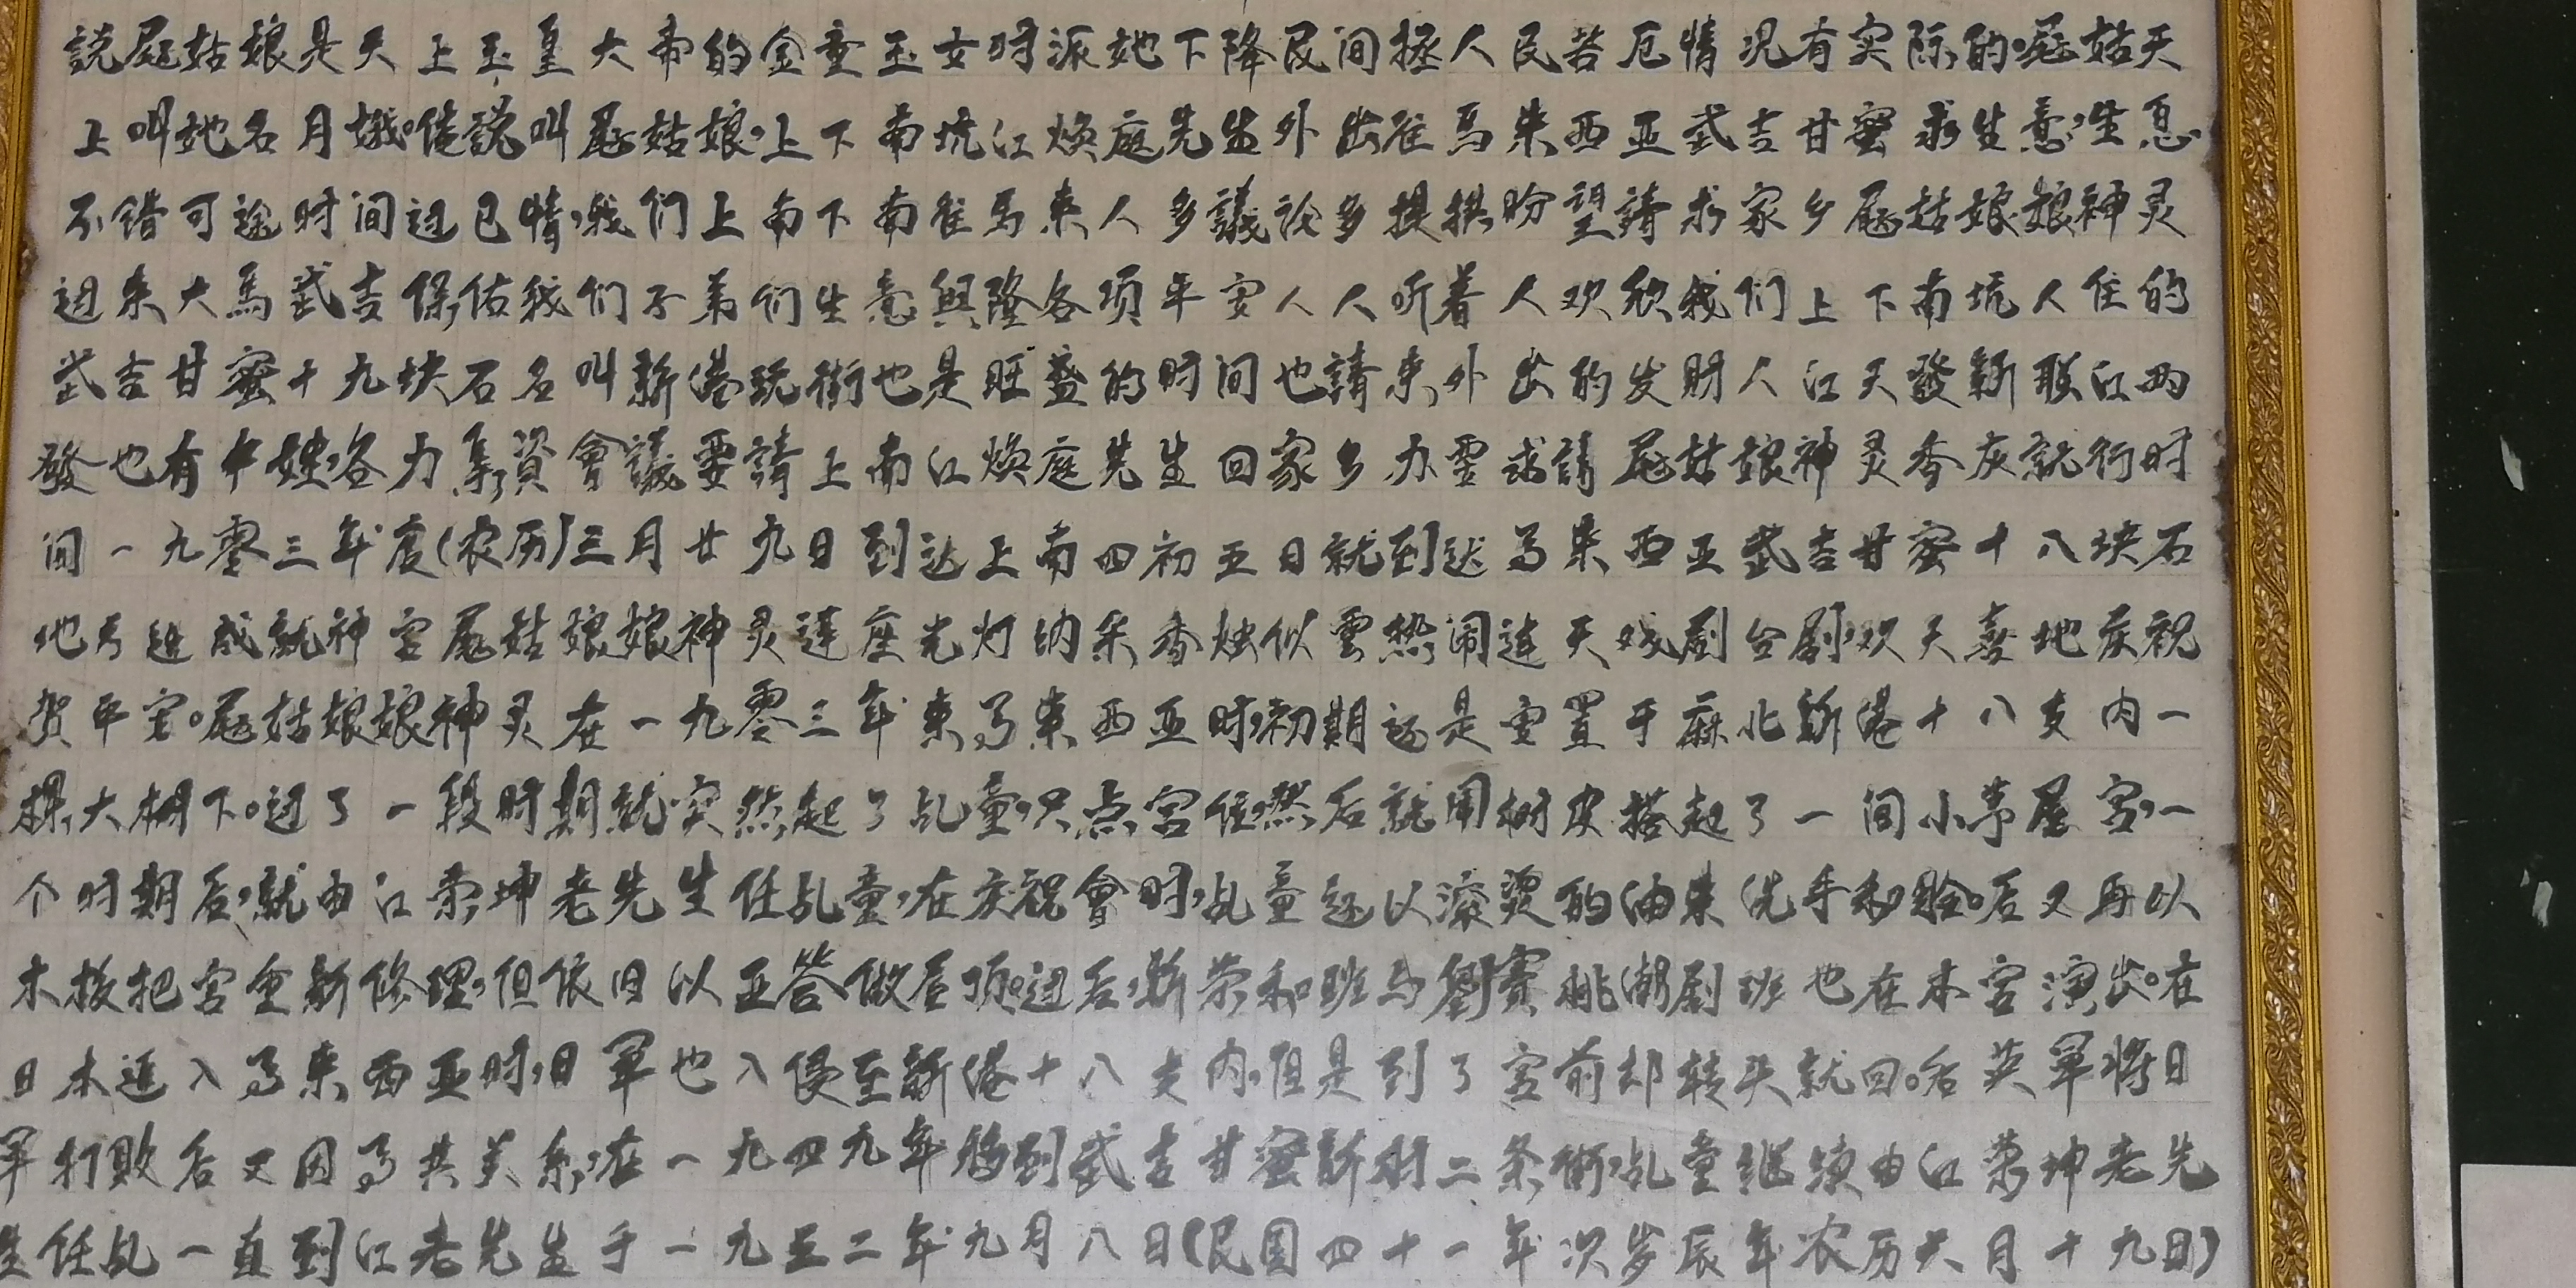 説屘姑娘是天上玉皇大帝的金童玉女时派她下降民间拯人民苦厄情况有实际的。屘姑天
上叫她名月娥。俺說叫屘姑娘，上下南坑江焕庭先生外出住馬来西亚武吉甘蜜求生意，生息
不错可途时间过已情，我们上南下南住馬来人多議论多提拱盼望請求家乡屘姑娘娘神灵
过来大馬武吉保佑我们子弟们生意興隆各项平安人人听着人欢欣我们上下南坑人住的
武吉甘蜜十九块石名叫新港玩街也是旺盛的时间也請来外出的发财人江天發新联江两
發也有中姓，各力集資會議要請上南江焕庭先生回家乡办要求請屘姑娘神灵香灰就行时
间一九零三年度(农历)三月廿九日到达上南四初五日就到达马来西亚武吉甘蜜十八块石
地方起成就神宫屘姑娘娘神灵莲座光灯纳采香烛似雲热闹连天戏剧台剧，欢天喜地庆祝
贺平安。屘姑娘娘神灵在一九零三年来马来西亚时，初期还是安置于麻北新港十八支内一
棵大树下。过了一段时期就突然起了乩童，只点宫位，然后就用树皮搭起了一间小茅屋宫，一
个时期后，就由江荣坤老先生任乩童，在庆祝會时，乩童还以滚烫的油来洗手和脸。后又再以
木板把宫重新修理，但依旧以亚答做屋顶。过后，新荣和班与賽桃潮剧班也在本宫演出。在
日本进入马来西亚时，日軍也入侵至新港十八支内，但是到了宫前却转头就回。后英軍将日
軍打敗后又因马共关系，在一九四九年移到武吉甘蜜新村二条街，乩童继续由江荣坤老先
生任乩一直到江老先生于一九五二年九月八日(民国四十一年次岁辰年农历六月十九日)